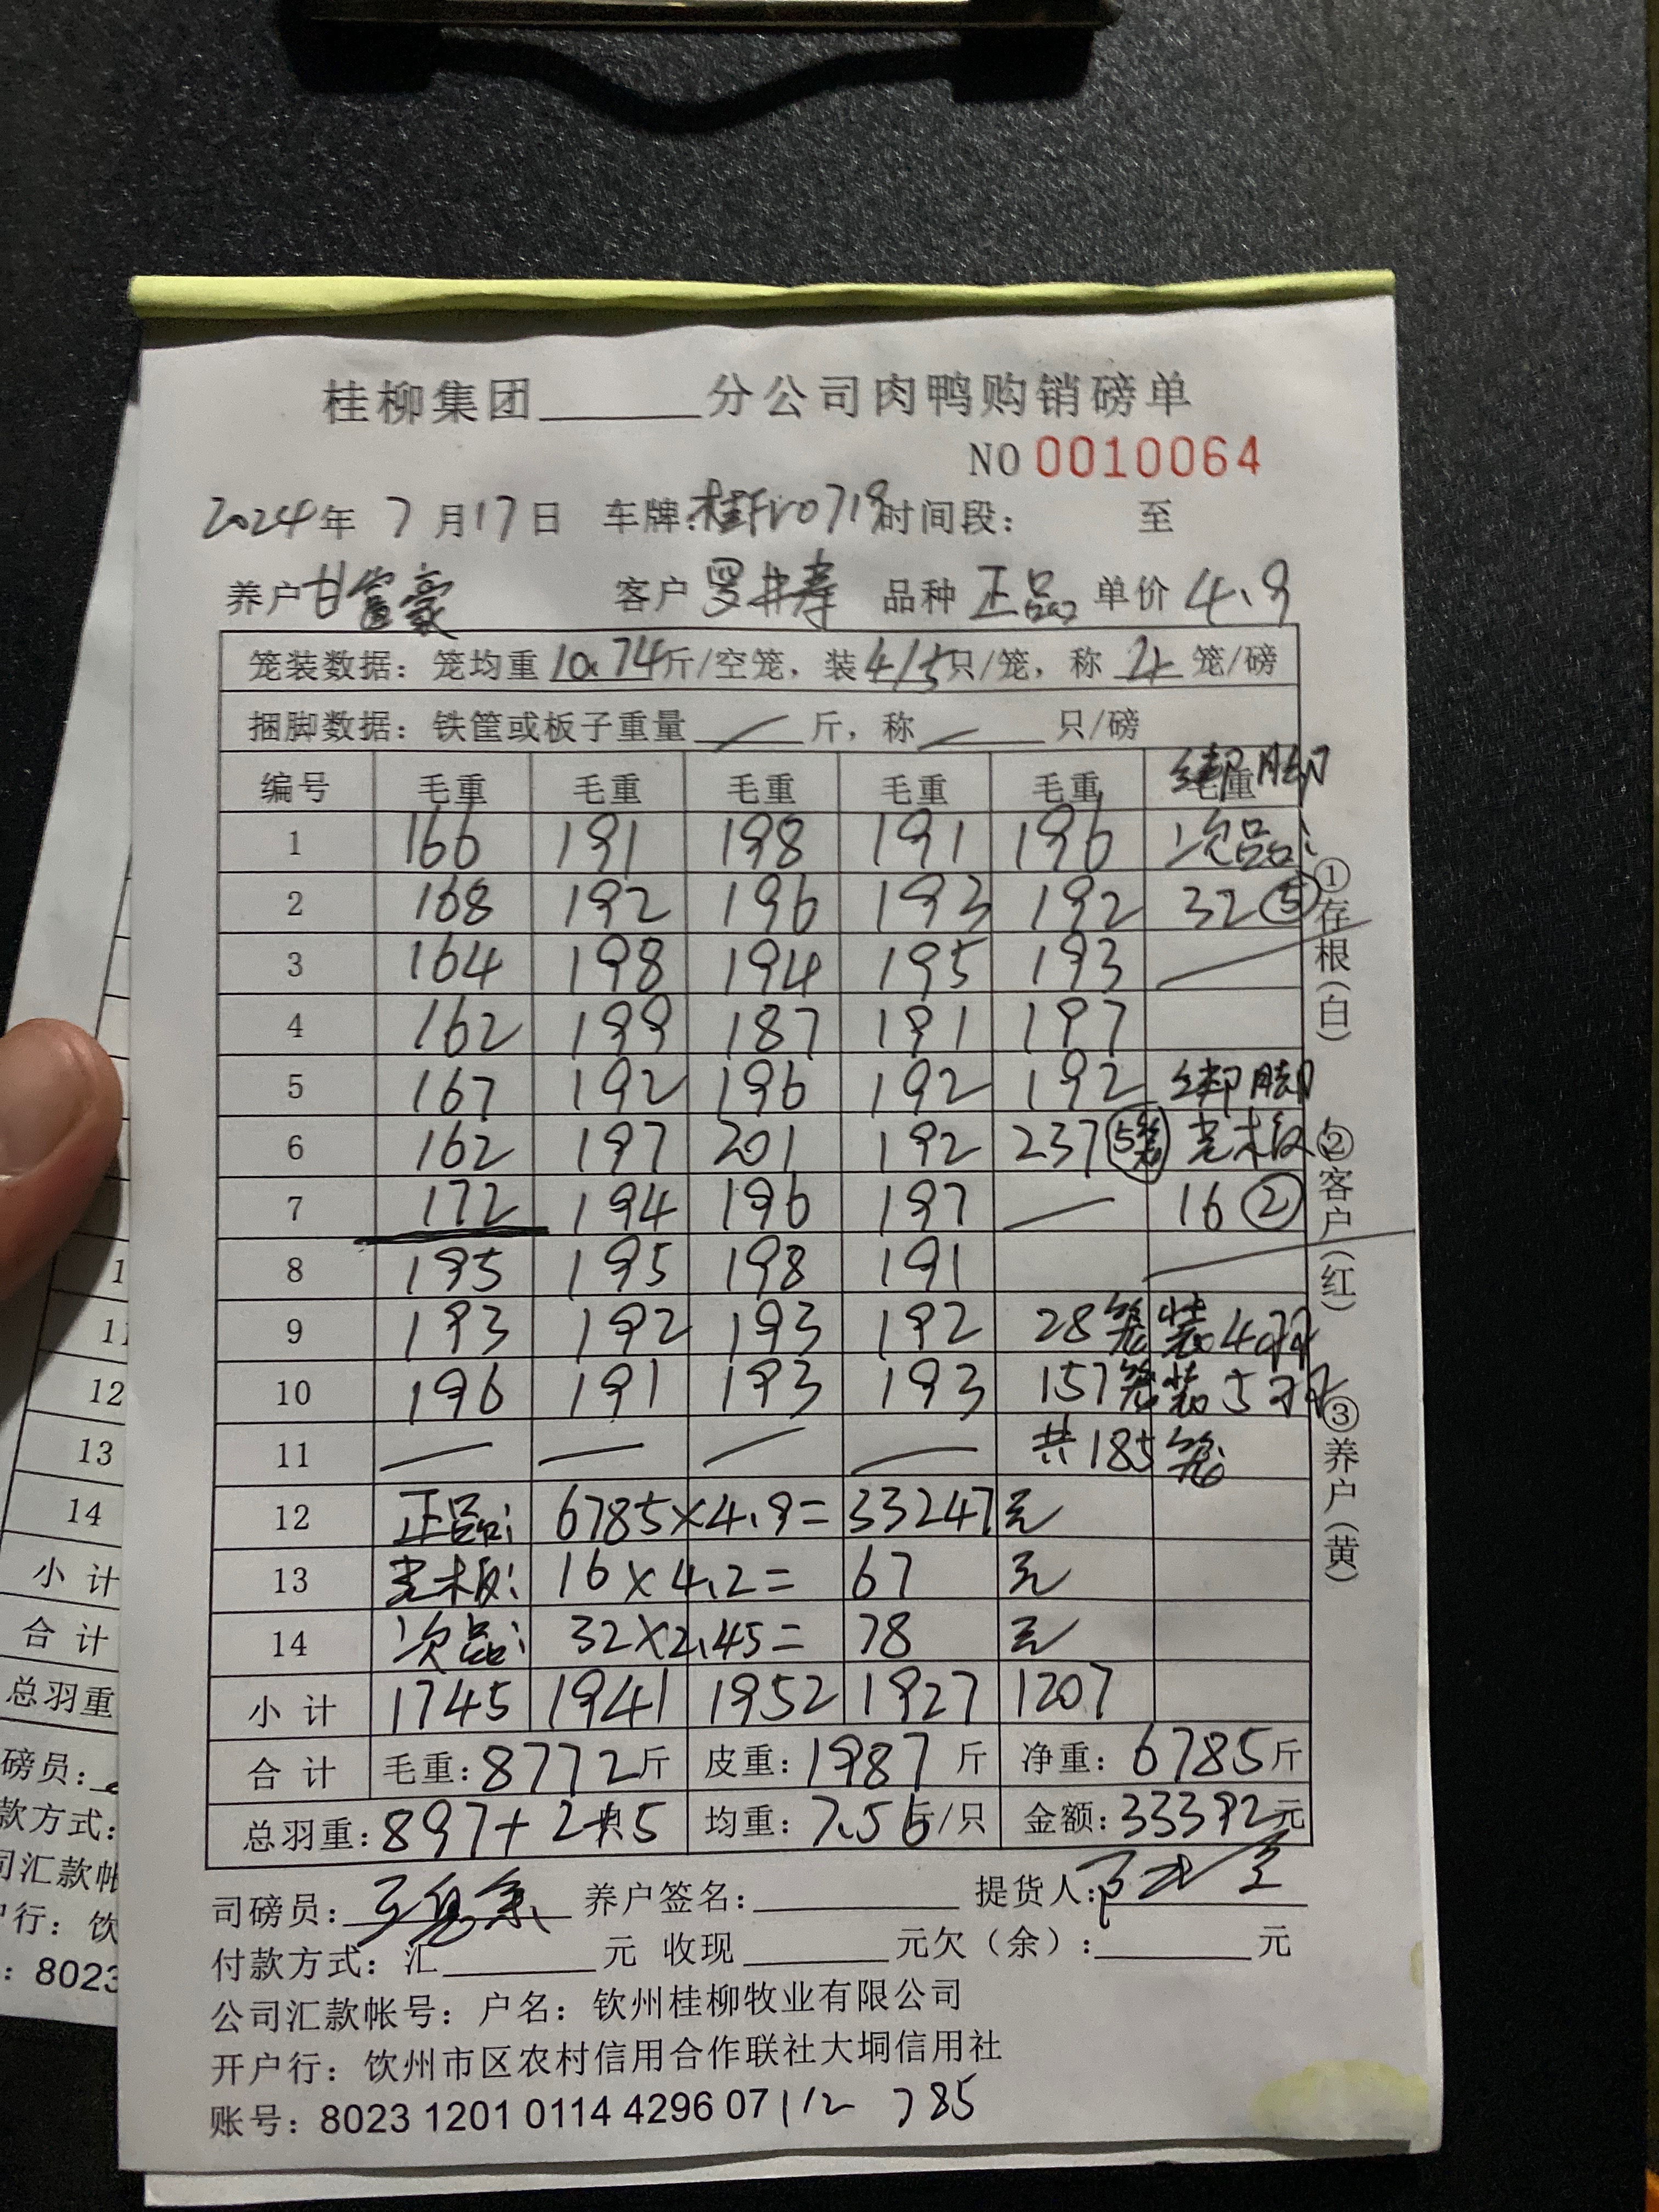 桂柳集团______分公司肉鸭购销磅单
NO 0010064
2024年 7月17日 车牌:桂Fr0719 时间段: 至
养户 甘富豪 客户 罗井寿 品种 正品 单价 4.9
笼装数据: 笼均重 10.74 斤/空笼, 装 4/5 只/笼, 称 4 笼/磅
捆脚数据: 铁筐或板子重量 — 斤, 称 — 只/磅
编号 毛重 毛重 毛重 毛重 毛重 绑脚
1 166 191 198 191 196 次品:
2 168 192 196 193 192 32 ⑤
3 164 198 194 195 193
4 162 199 187 191 197
5 167 192 196 192 192 绑脚
6 162 197 201 192 237 (5笼) 光板:
7 172 194 196 197 — 16 ②
8 195 195 198 191
9 193 192 193 192 28笼装4只
10 196 191 193 193 157笼装5只
11 — — — — 共185笼
12 正品: 6785×4.9= 33247元
13 光板: 16×4.2= 67 元
14 次品: 32×2.45= 78 元
小计 1745 1941 1952 1927 1207
合计 毛重: 8772斤 皮重: 1987 斤 净重: 6785斤
总羽重: 897+2+5 均重: 7.56斤/只 金额: 33392元
司磅员: 养户签名: 提货人:
付款方式: 汇______元 收现______元欠(余):______元
公司汇款帐号: 户名: 钦州桂柳牧业有限公司
开户行: 钦州市区农村信用合作联社大垌信用社
账号: 8023 1201 0114 4296 07 112 785
①存根(白)
②客户(红)
③养户(黄)
1
11
12
13
14
小计
合计
总羽重
磅员:
款方式:
司汇款帐
户行: 钦
: 8023